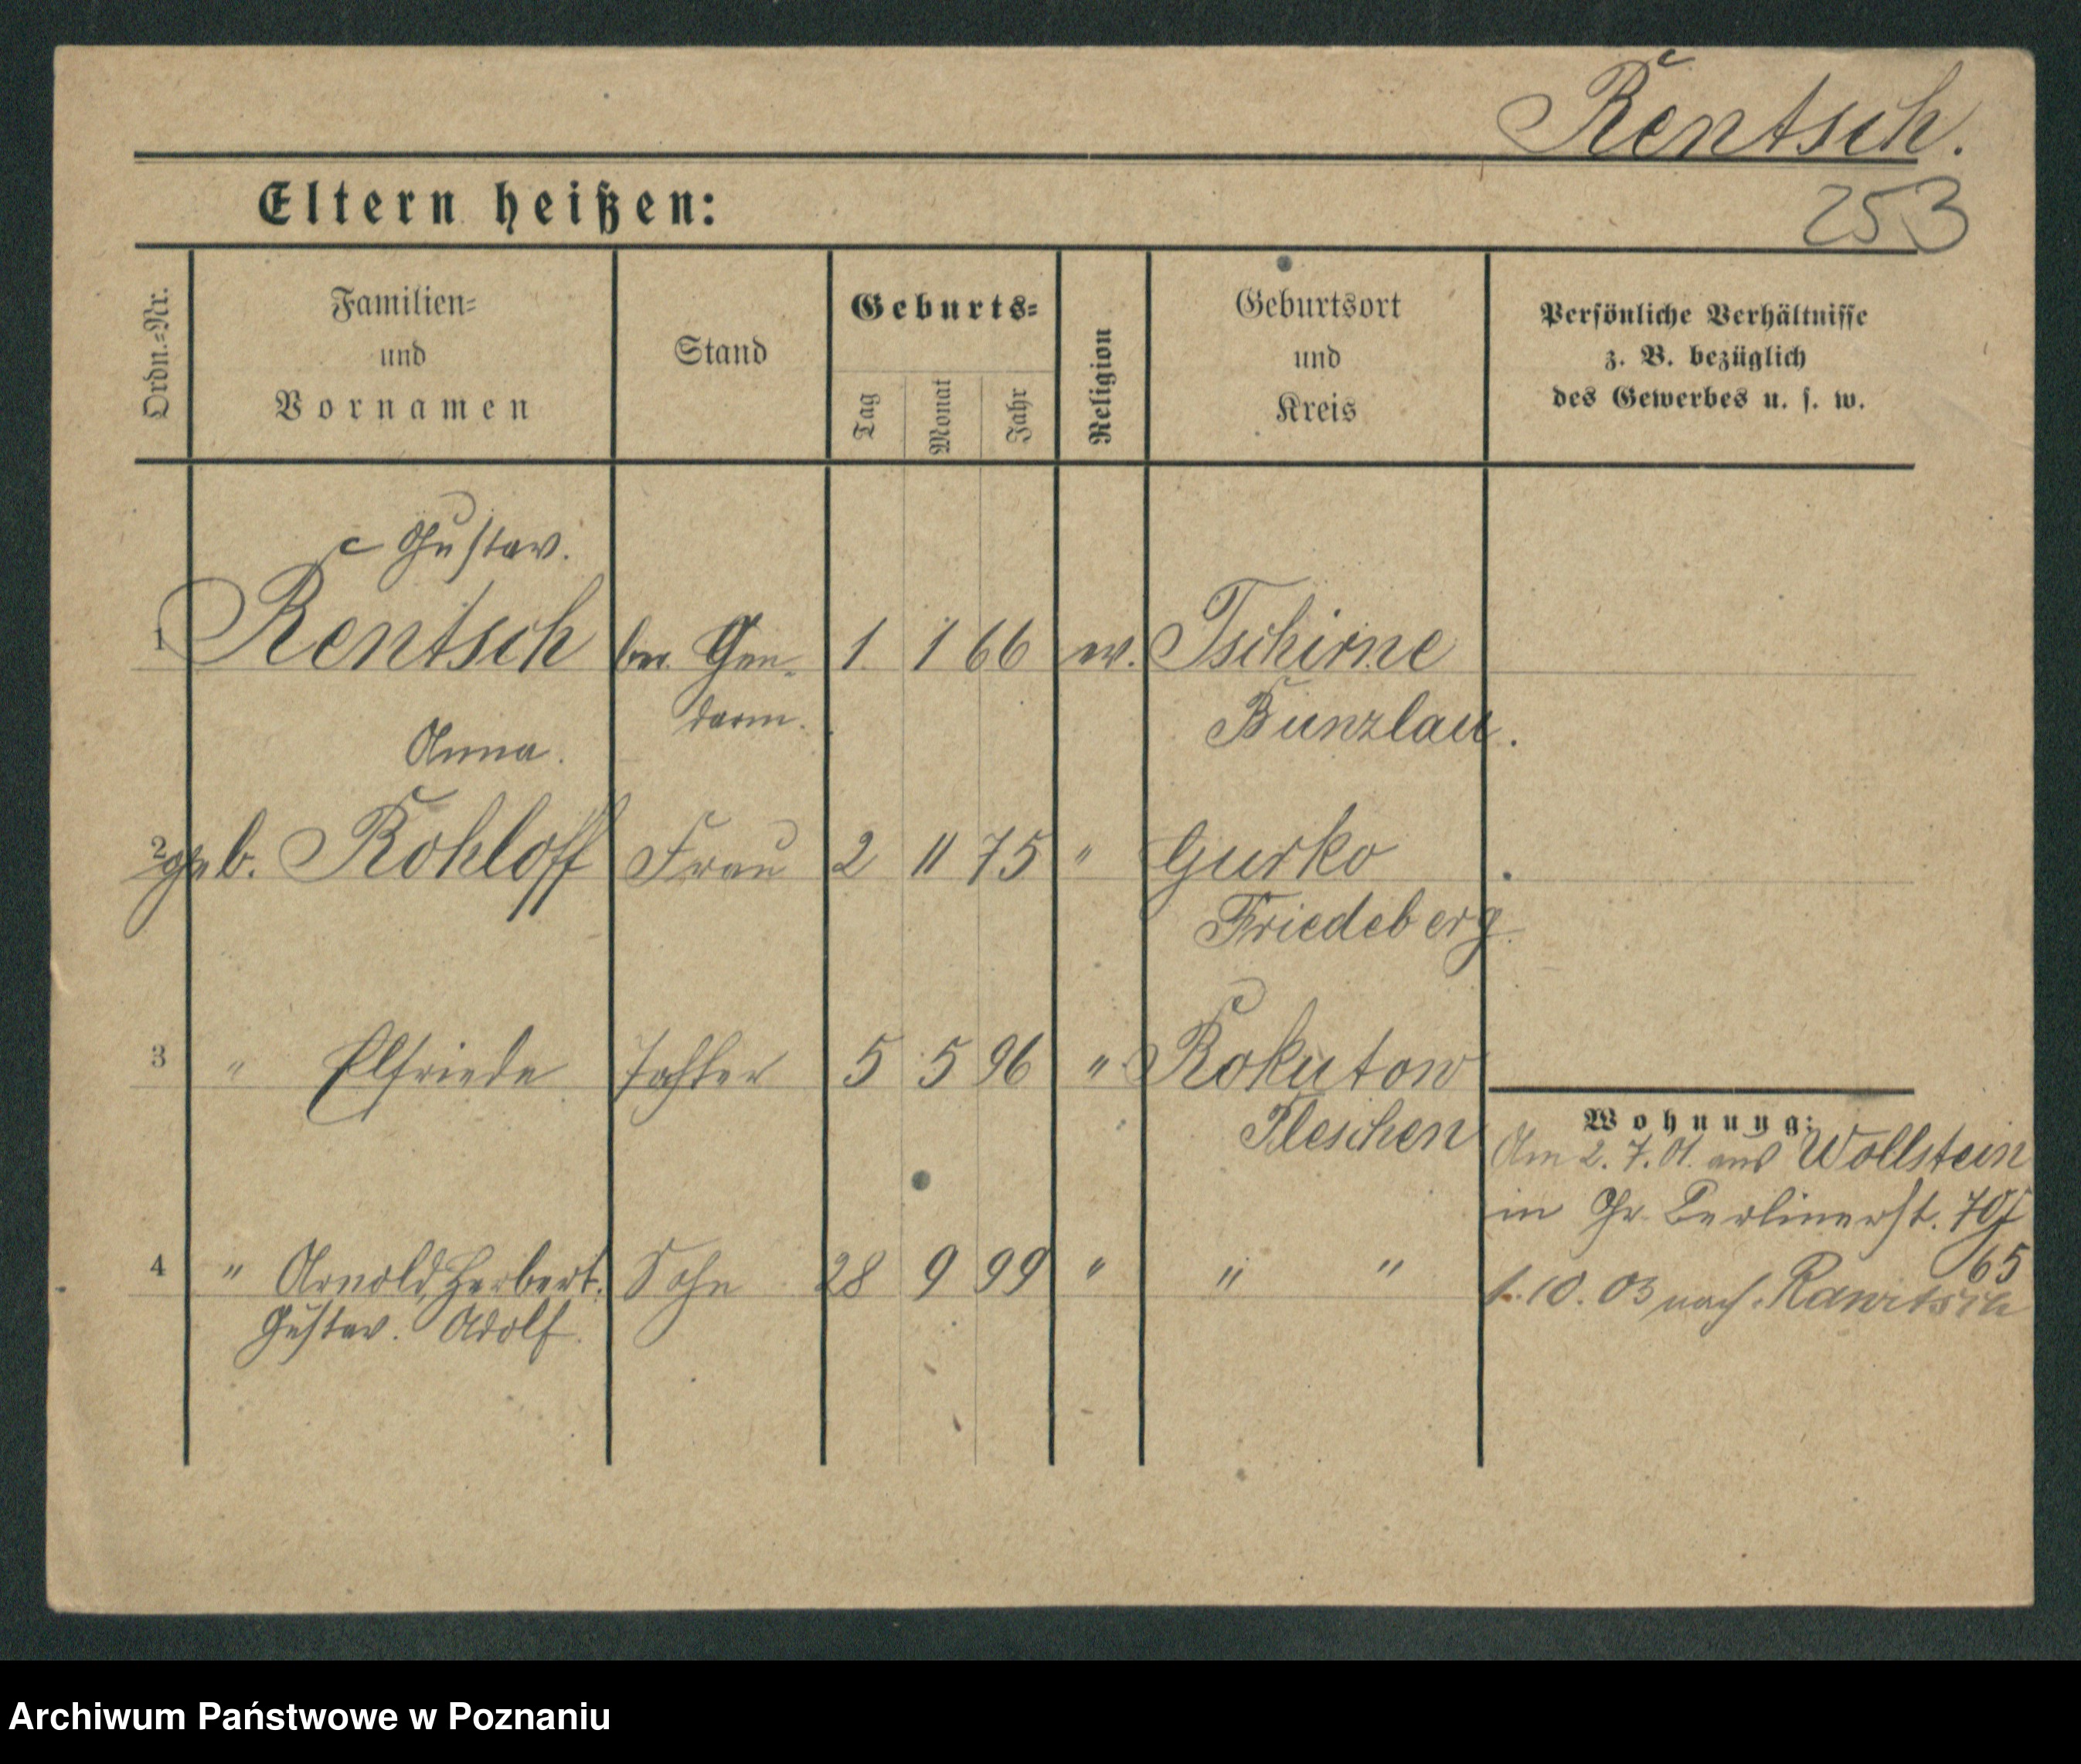 Rentsch.
Eltern heißen:
253
Ordn.-Nr.
Familien-
und
Vornamen
Stand
Geburts-
Tag
Monat
Jahr
Religion
Geburtsort
und
Kreis
Persönliche Verhältnisse
z. B. bezüglich
des Gewerbes u. s. w.
Gustav.
1 Rentsch ber. Gen- 1. 1 66 ev. Tschirne
darm. Bunzlau.
Anna.
2 geb. Rohloff Frau 2 11 75 " Gurko
Friedeberg.
3 " Elfriede Tochter 5 5 96 " Rokutow
Pleschen
Wohnung:
Am 2. 7. 01. aus Wollstein
in Gr. Berlinerst.
65
4 " Arnold, Herbert. Sohn 28 9 99 " " "
Gustav. Adolf.
1. 10. 03 nach Rawitsch
Archiwum Państwowe w Poznaniu